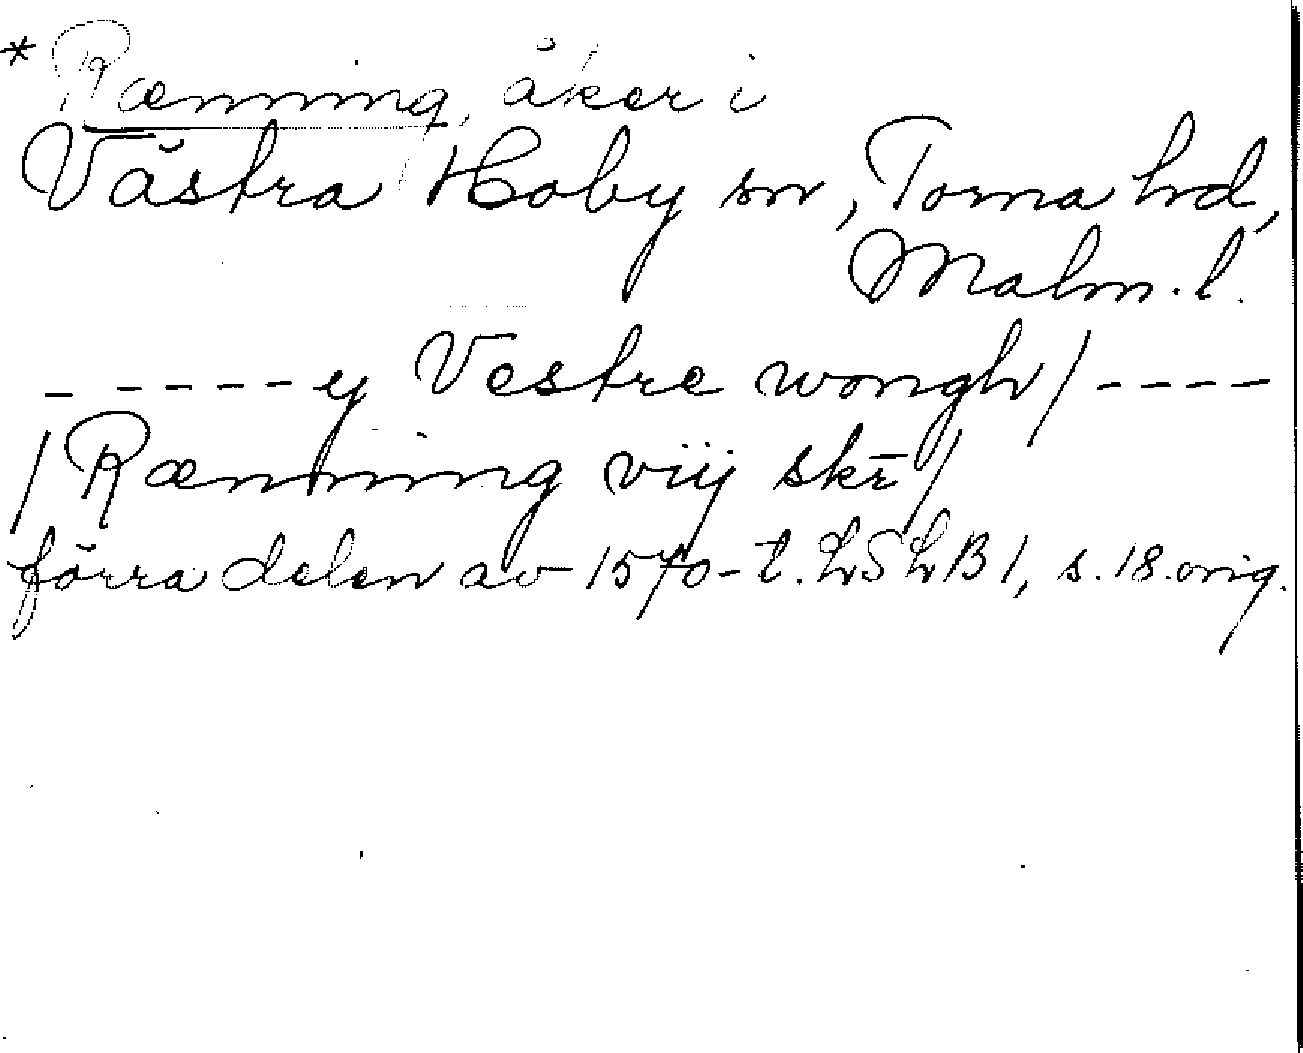 * Rænning, åker i
Västra Hoby sn, Torna hd,
Malm. l.
- - - - - y Vestre wongh / - - - -
/ Rænning viij skr̄ /
förra delen av 1570-t. LSLB1, s. 18. orig.